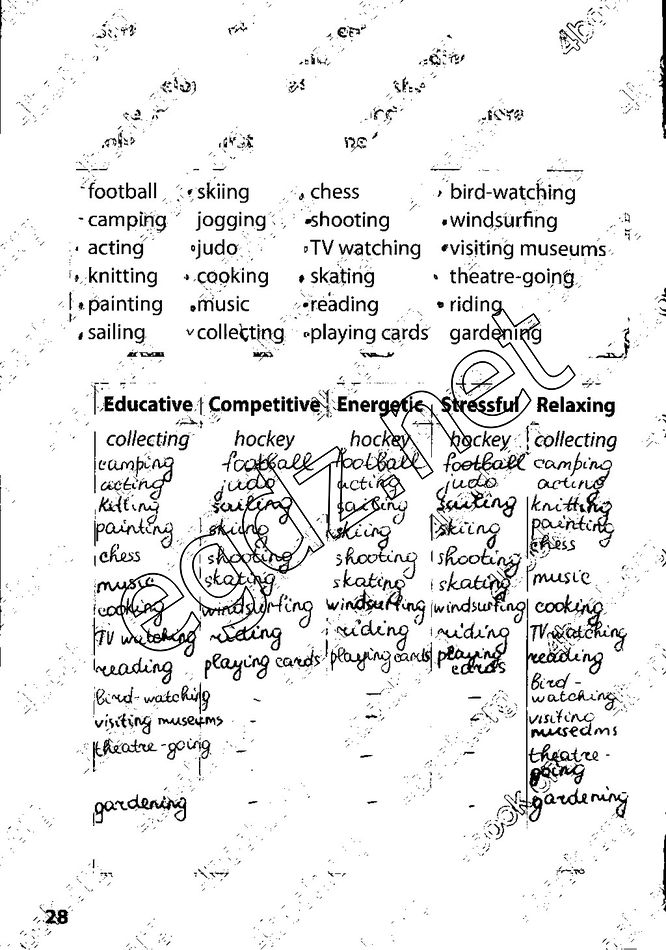 football skiing chess bird-watching
camping jogging shooting windsurfing
acting judo TV watching visiting museums
knitting cooking skating theatre-going
painting music reading riding
sailing collecting playing cards gardening
Educative Competitive Energetic Stressful Relaxing
collecting hockey hockey hockey collecting
camping football football football camping
acting judo acting judo acting
kitting sailing sailing sailing knitting
painting skiing skiing skiing painting
chess shooting shooting shooting chess
music skating skating skating music
cooking windsurfing windsurfing windsurfing cooking
TV watching riding riding riding TV watching
reading playing cards playing cards playing cards reading
bird-watching - - - bird-watching
visiting museums - - - visiting museums
theatre-going - - - theatre-going
gardening - - - gardening
28
egdz.net